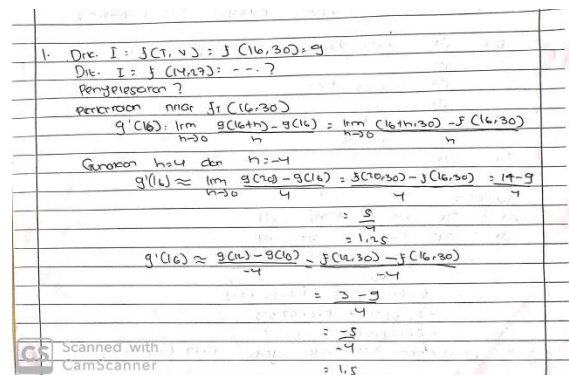 1. Dik. I = f(T, v) = f (16, 30) = 9
Dit. I = f (14,27) = ---. ?
Penyelesaian ?
Perkiraan nilai fT (16,30)
g'(16) = lim h→0 g(16+h) - g(16) / h = lim h→0 (16+h,30) - f (16,30) / h
Gunakan h=4 dan h=-4
g'(16) ≈ lim h→0 g(20) - g(16) / 4 = f(20,30) - f(16,30) / 4 = 14-9 / 4
= 5/4
= 1,25
g'(16) ≈ g(12) - g(16) / -4 = f(12,30) - f(16,30) / -4
= 3 - 9 / -4
= -5 / -4
= 1,5
CS Scanned with
CamScanner